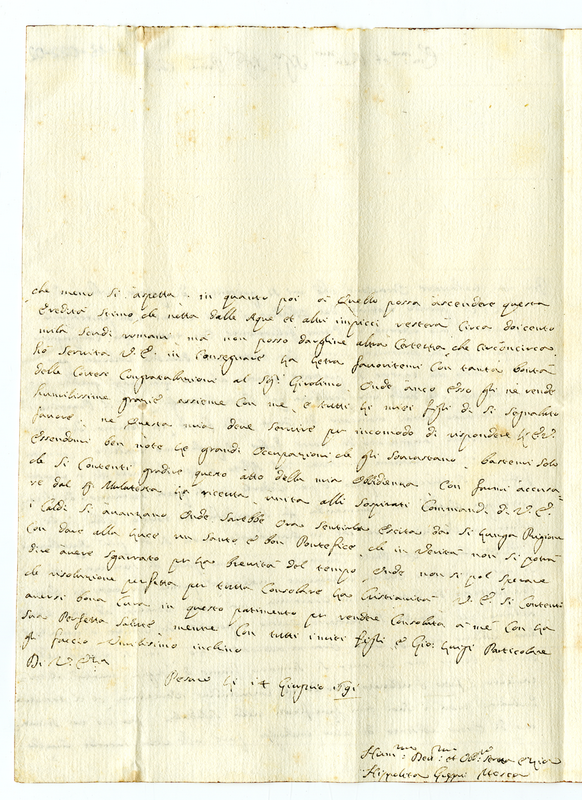 che meno si aspetta. in quanto poi à Quello possa ascendere questa
Eredità stimo che netta dalle spese et altri impicci resterà Circa doicento
mila Scudi romani, mà non posso dargline altra Certezza, che Circoncirca.
Hò Servita V. E. in Consegnare la letra favoritemi Con tanta bontà
delle Cortese Congratulazioni al Sig.r Girolimo, Onde anco esso gli ne rende
humilissime grazie assieme con me, e tutti li miei figli di Si Segnalato
favore, ne Questa mia deve Servire per incomodo di rispondere
Essendomi ben note le grandi Occupazioni che gli Sovrastano, bastemi Solo
che Si Contenti gradire questo atto della mia Obbidienza Con farmi accusa=
re dal Malatesta la ricetta, unita alli Sospirati Commandi di V. E.
i Caldi Si avanzano Onde Sarebbe Ora Sentirla Escita dai Si lunga Prigione
Con dare alla un Santo e bon Pontefice, che in Verità non Si potrà
dire avere per la brevità del tempo, Onde non si pol Sperare
che risoluzione perfetta per tutta Consolare la Cristianità V. E. Si Contenti
aversi bona Cura in questo patimento per rendere Consolata à me Con la
Sua Perfetta Salute, mentre Con tutti i miei figli e Gio: Luigi Particolare
gli faccio Umilissimo inchino
Di V. E.za
Pesaro li 14 Giugnio 1691
Hum.ma Dev.ma et Obl.ma Serva
Hippolita Mosca